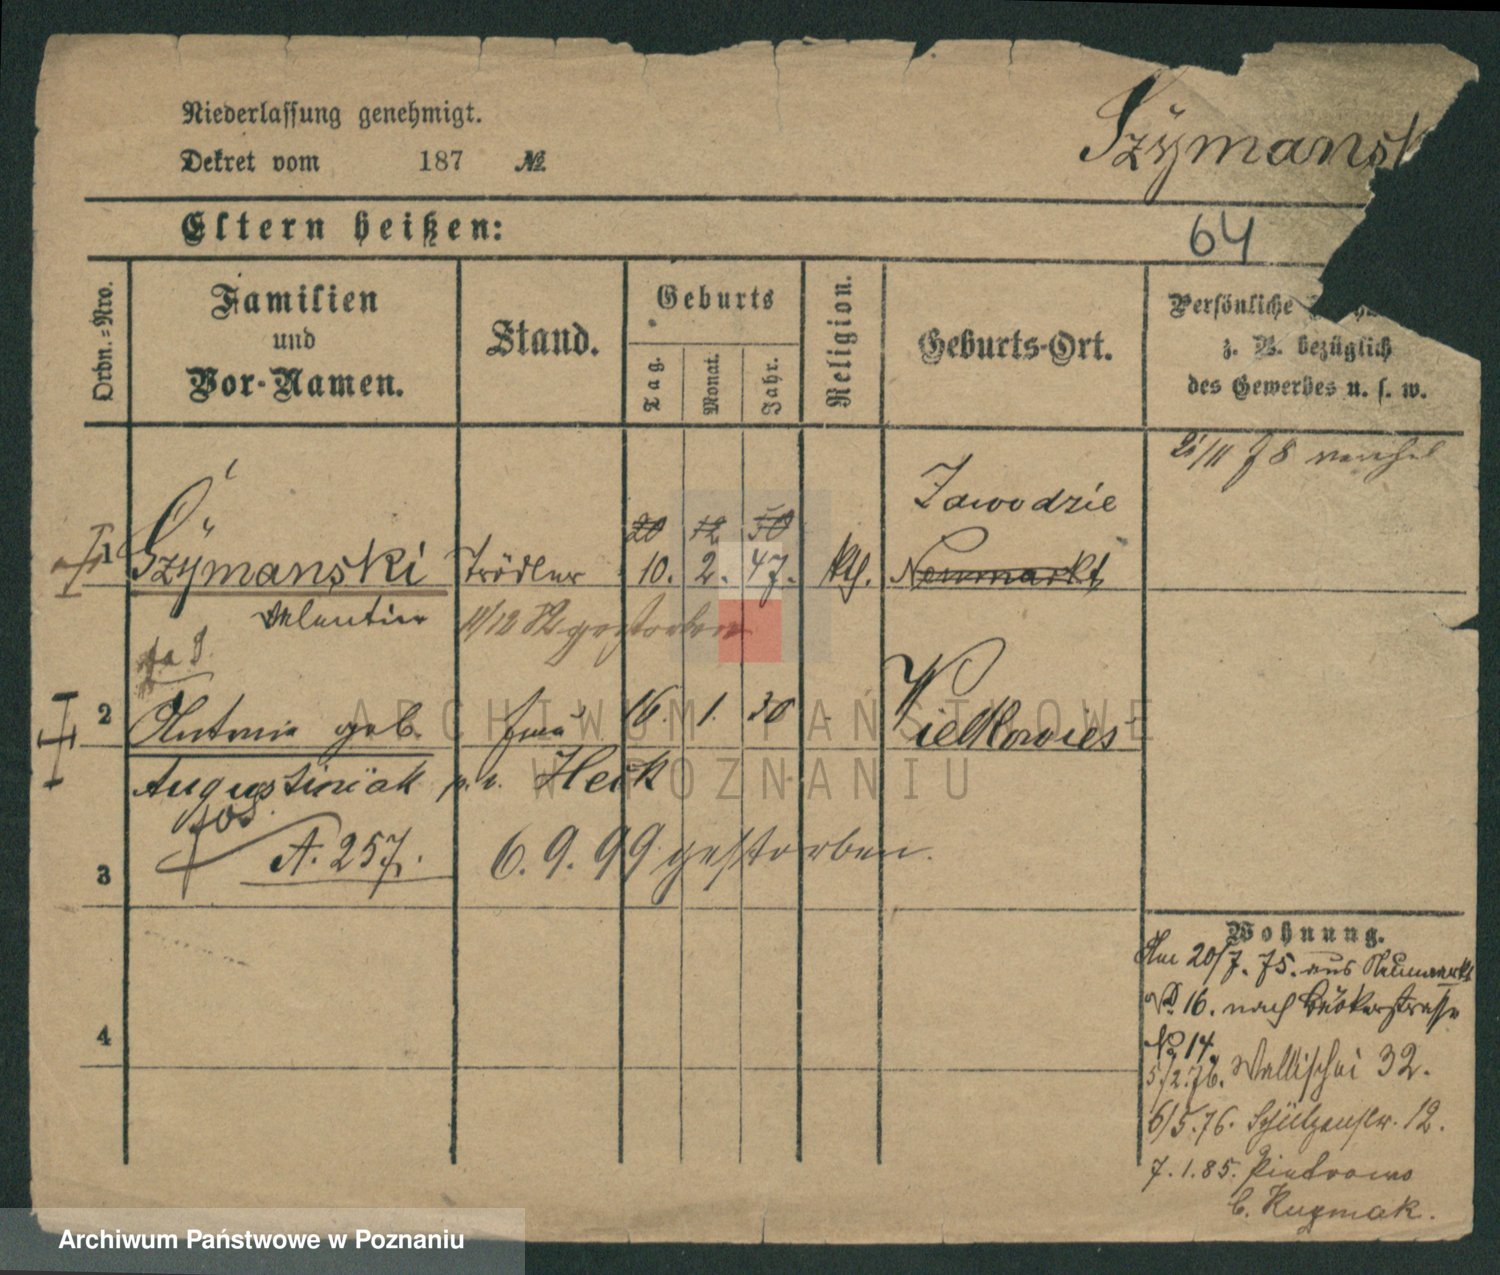 Szymansk
Niederlassung genehmigt.
Dekret vom 187 №
Eltern heißen:
64
Ordn.-Nro.
Familien
und
Vor-Namen.
Stand.
Geburts
Tag.
Monat.
Jahr.
Religion.
Geburts-Ort.
Persönliche
z. B. bezüglich
des Gewerbes u. s. w.
Zawodzie
20 12 50
1 Szymanski Trödler 10. 2. 47. kth. Neumarkt
Valentin 11/12 82 gestorben
2 Antonie geb. Frau 16. 1. 30 Wielkowies
Augustiniak p. v. Heik
A. 257. 6. 9. 99 gestorben.
3
4
Wohnung.
Am 20/7. 75. aus Neumarkt
No 16. nach Bäckerstrasse
No 14.
5/2. 76. Wallischei 32.
6/5. 76. Schützenstr. 12.
7. 1. 85. Pietrowo
b. Kuzmak.
ARCHIWUM PAŃSTWOWE
W POZNANIU
Archiwum Państwowe w Poznaniu